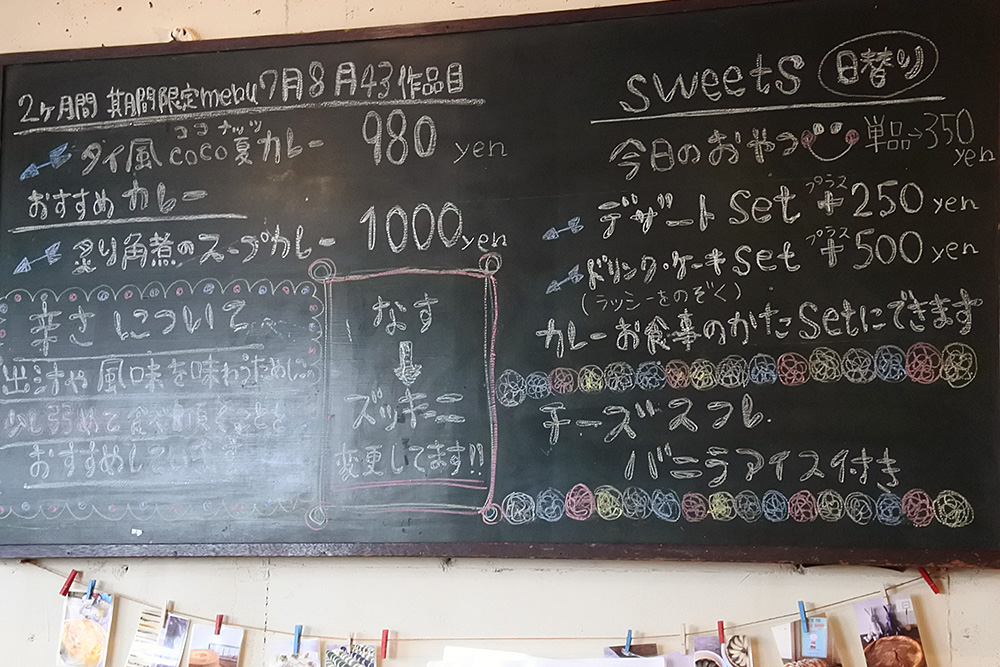 2ヶ月間 期間限定menu 7月8月43作品目
ココナッツ
タイ風coco夏カレー 980 yen
おすすめカレー
炙り角煮のスープカレー 1000 yen
辛さについて
出汁や風味を味わうため
少し弱めで食べ
おすすめしてい
なす
↓
ズッキーニ
変更してます!!
sweets 日替り
今日のおやつ 単品→350 yen
デザートset プラス +250 yen
ドリンク・ケーキset プラス +500 yen
(ラッシーをのぞく)
カレーお食事のかたsetにできます
チーズスフレ
バニラアイス付き